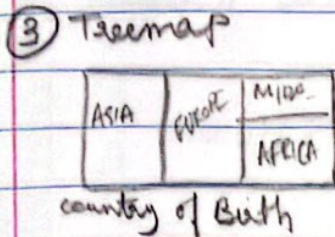 ③ Treemap
ASIA
EUROPE
MIDE
AFRICA
country of Birth